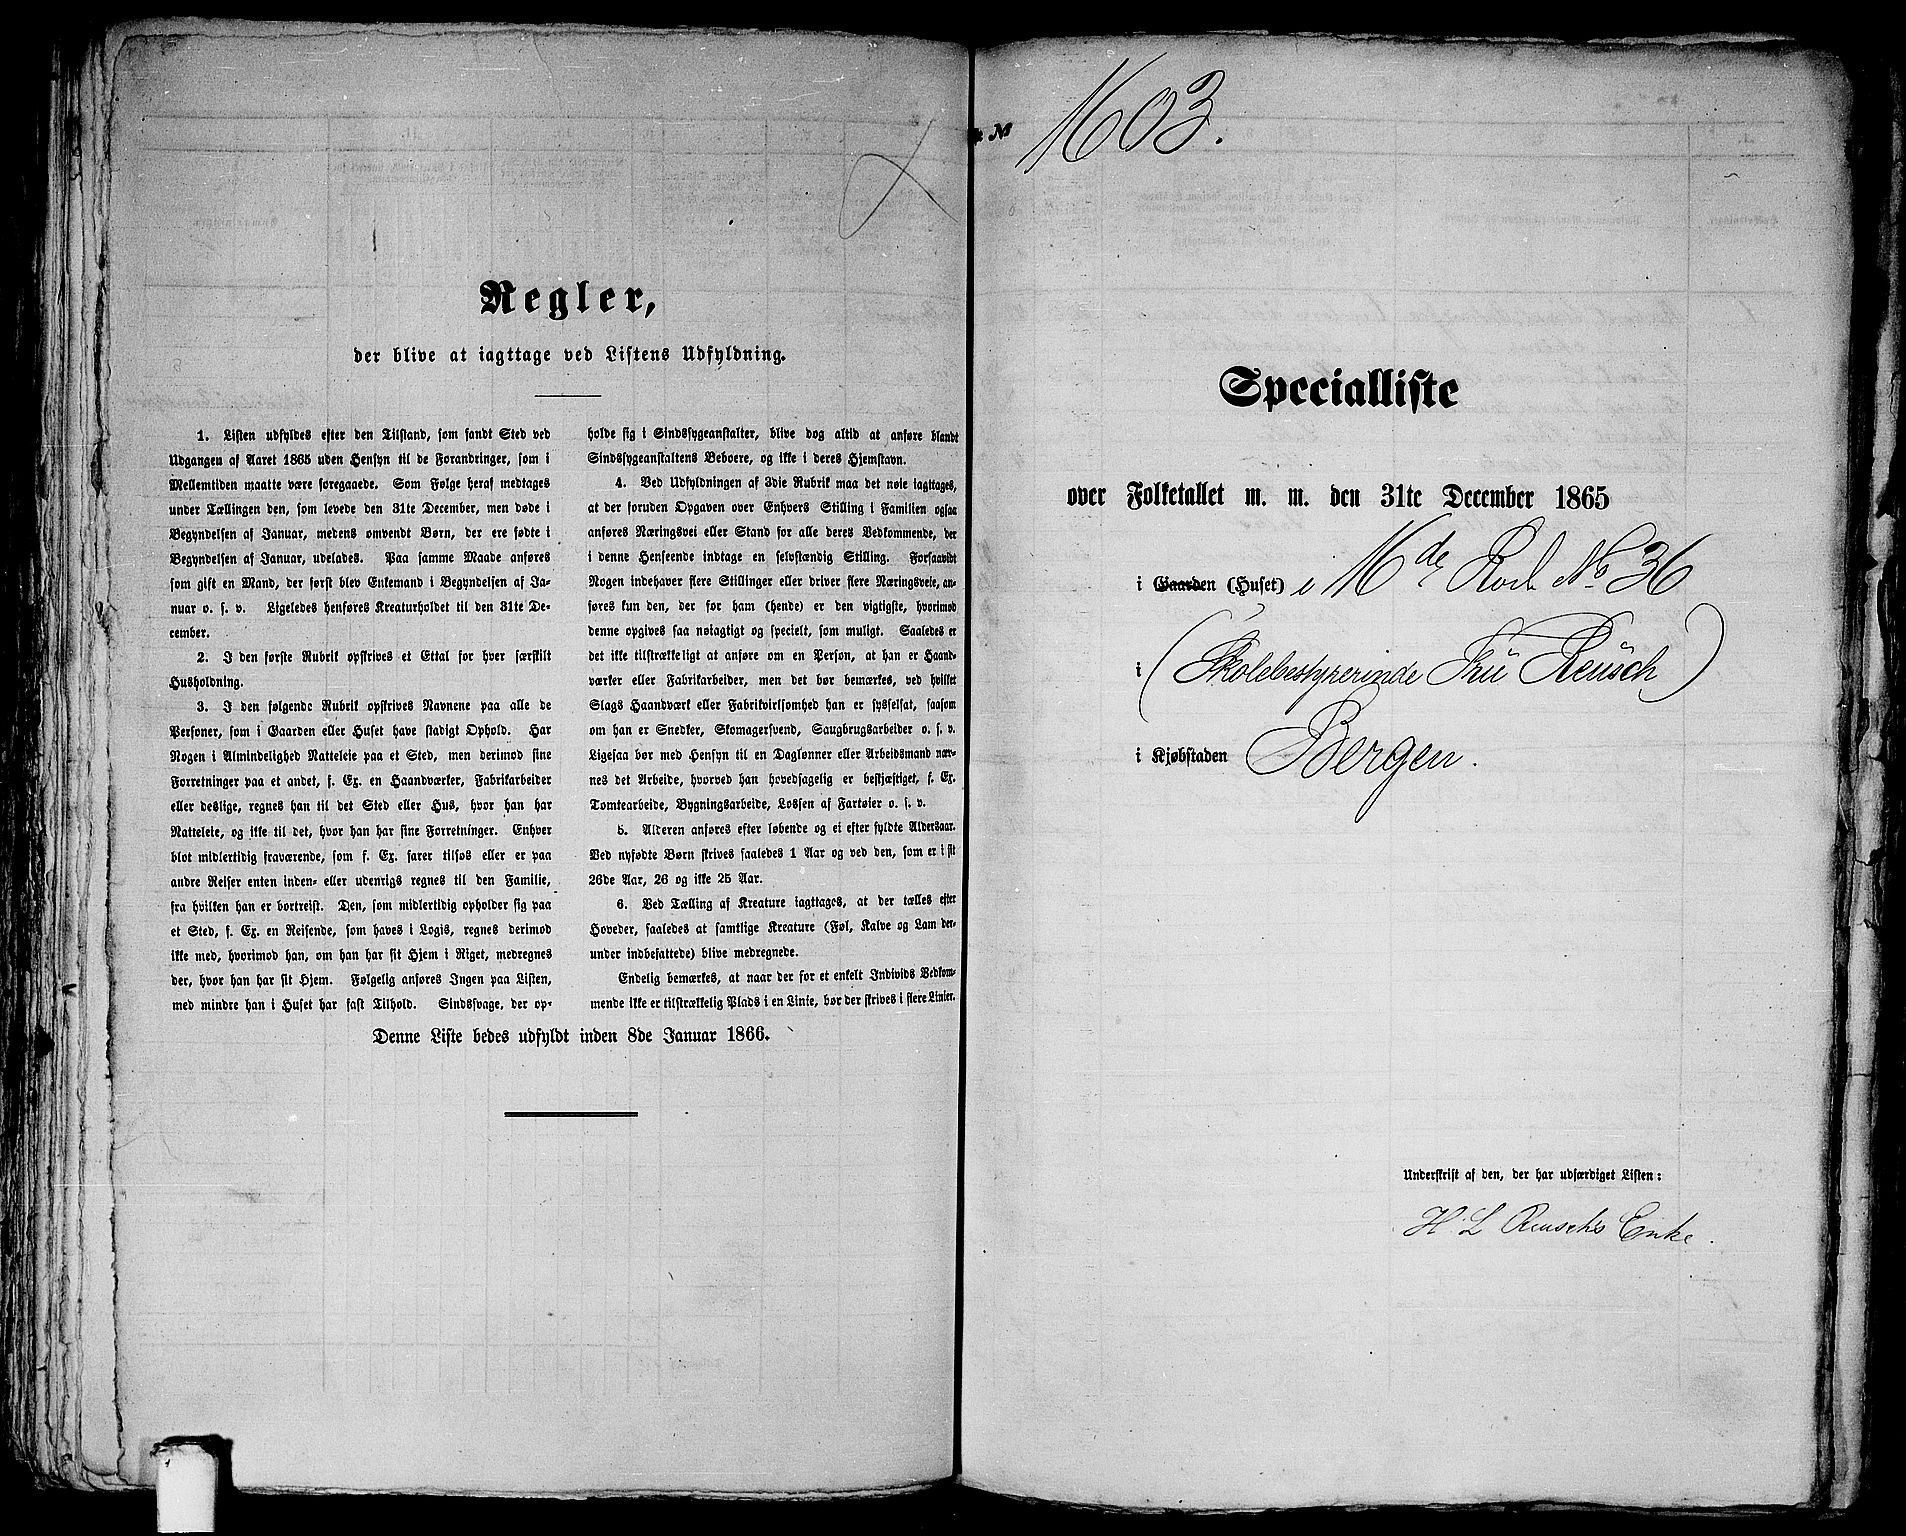 Regler,
der blive at iagttage ved Listens Udfyldning.
1. Listen udfyldes efter den Tilstand, som fandt Sted ved
Udgangen af Aaret 1865 uden Hensyn til de Forandringer, som i
Mellemtiden maatte være foregaaede. Som Følge heraf medtages
under Tællingen den, som levede den 31te December, men døde i
Begyndelsen af Januar, medens omvendt Børn, der ere fødte i
Begyndelsen af Januar, udelades. Paa samme Maade anføres
som gift en Mand, der først blev Enkemand i Begyndelsen af Ja-
nuar o. s. v. Ligeledes henføres Kreaturholdet til den 31te De-
cember.
2. I den første Rubrik opskrives et Ettal for hver særskilt
Husholdning.
3. I den følgende Rubrik opskrives Navnene paa alle de
Personer, som i Gaarden eller Huset have stadigt Ophold. Har
Nogen i Almindelighed Natteleie paa et Sted, men derimod sine
Forretninger paa et andet, f. Ex. en Haandværker, Fabrikarbeider
eller deslige, regnes han til det Sted eller Hus, hvor han har
Natteleie, og ikke til det, hvor han har sine Forretninger. Enhver
blot midlertidig fraværende, som f. Ex. farer tilsøs eller er paa
andre Reiser enten inden- eller udenrigs regnes til den Familie,
fra hvilken han er bortreist. Den, som midlertidig opholder sig paa
et Sted, f. Ex. en Reisende, som haves i Logis, regnes derimod
ikke med, hvorimod han, om han har sit Hjem i Riget, medregnes
der, hvor han har sit Hjem. Følgelig anføres Ingen paa Listen,
med mindre han i Huset har fast Tilhold. Sindssvage, der op-
holde sig i Sindssygeanstalter, blive dog altid at anføre blandt
Sindssygeanstaltens Beboere, og ikke i deres Hjemstavn.
4. Ved Udfyldningen af 3die Rubrik maa det nøie iagttages,
at der foruden Opgaven over Enhvers Stilling i Familien ogsaa
anføres Næringsvei eller Stand for alle deres Vedkommende, der
i denne Henseende indtage en selvstændig Stilling. Forsaavidt
Nogen indehaver flere Stillinger eller driver flere Næringsveie, an-
føres kun den, der for ham (hende) er den vigtigste, hvorimod
denne opgives saa nøiagtigt og specielt, som muligt. Saaledes er
det ikke tilstrækkeligt at anføre om en Person, at han er Haand-
værker eller Fabrikarbeider, men det bør bemærkes, ved hvilket
Slags Haandværk eller Fabrikvirksomhed han er sysselsat, saasom
om han er Snedker, Skomagersvend, Saugbrugsarbeider o. s. v.
Ligesaa bør med Hensyn til en Daglønner eller Arbeidsmand næv-
nes det Arbeide, hvorved han hovedsagelig er beskjæftiget, f. Ex.
Tomtearbeide, Bygningsarbeide, Lossen af Fartøier o. s. v.
5. Alderen anføres efter løbende og ei efter fyldte Aldersaar.
Ved nyfødte Børn skrives saaledes 1 Aar og ved den, som er i sit
26de Aar, 26 og ikke 25 Aar.
6. Ved Tælling af Kreature iagttages, at der tælles efter
Hoveder, saaledes at samtlige Kreature (Føl, Kalve og Lam der-
under indbefattede) blive medregnede.
Endelig bemærkes, at naar der for et enkelt Individs Vedkom-
mende ikke er tilstrækkelig Plads i en Linie, bør der skrives i flere Linier.
Denne Liste bedes udfyldt inden 8de Januar 1866.
№ 1603.
Specialliste
over Folketallet m. m. den 31te December 1865
i Gaarden (Huset) i 16de Rode No 36
i (Skolebestyrerinde Frü Reüsch)
i Kjøbstaden Bergen.
Underskrift af den, der har udfærdiget Listen:
H. L Reusch's Enke.